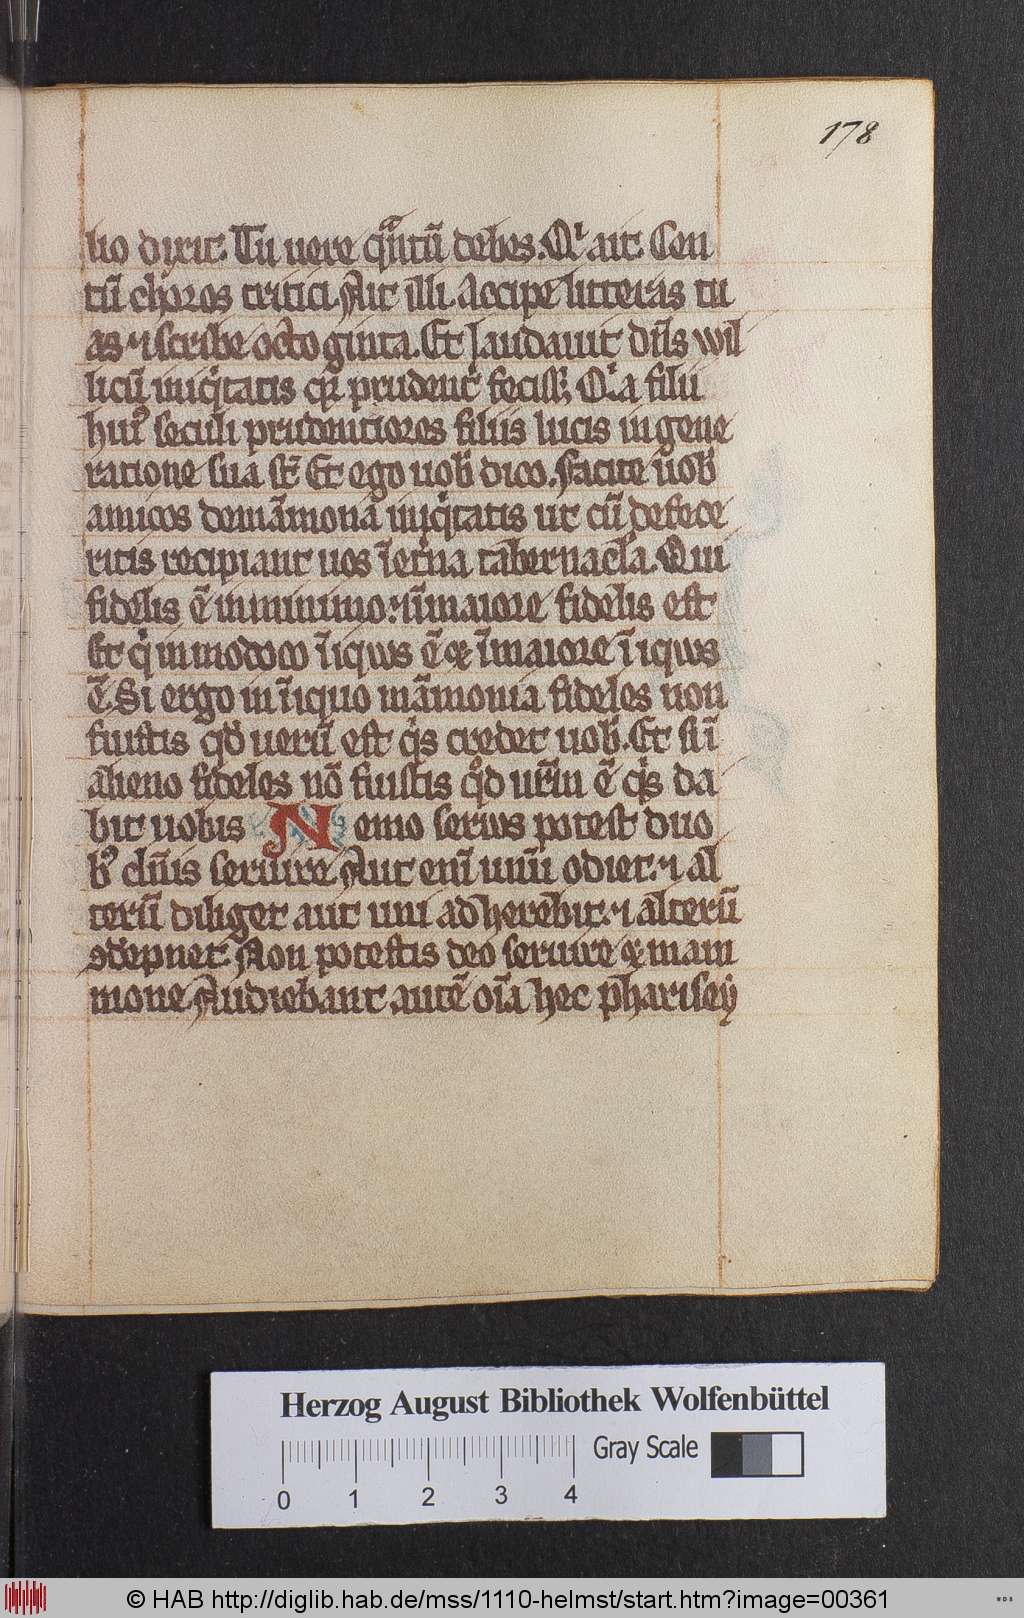 178
lio dixit. Tu uere qͣntū debes. Qͥ ait. Cen
tū choros tritici. Aut illi. Accipe litteras tu
as ⁊ scribe octoginta. Et laudauit dn̄s wil
licū iniqͥtatis qꝛ prudent͛ feciss; Qꝛa filii
huiꝰ seculi prudentiores filiis lucis in gene
ratione sua st̄ Et ego uob̄ dico. Facite uob̄
amicos de māmona iniqͥtatis ut cū defece
ritis recipiant uos ī et͛na tabernacl̄a. Qui
fidelis ē in minimo. ⁊ ī maiore fidelis est
Et qͥ in modoco īiqws ē ⁊ ī maiore īiqws
ē. Si ergo in īiquo māmonia fideles non
fuistis qd̄ uerū est qͥs credet uob̄. Et si ī
alieno fideles nō fuistis qͦd ur̄m ē qͥs da
bit uobis Nemo serws potest duo
bꝰ dn̄is seruire Aut enī unū odiet. ⁊ al
terū diliget aut uni adherebit. ⁊ alterū
ꝯdēpnet. Non potestis deo seruire ⁊ mam
mone Audiebant autē oīa hec pharisey
Herzog August Bibliothek Wolfenbüttel
Gray Scale
0 1 2 3 4
© HAB http://diglib.hab.de/mss/1110-helmst/start.htm?image=00361